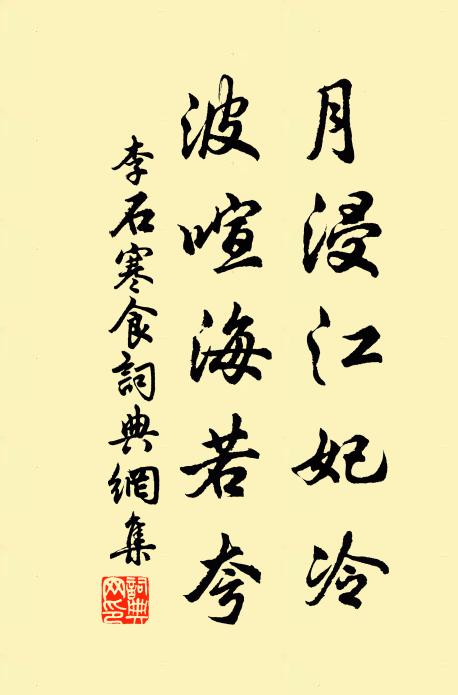 月浸江妃冷
波喧海若夸
李石寒食詞典網集
詞典網印